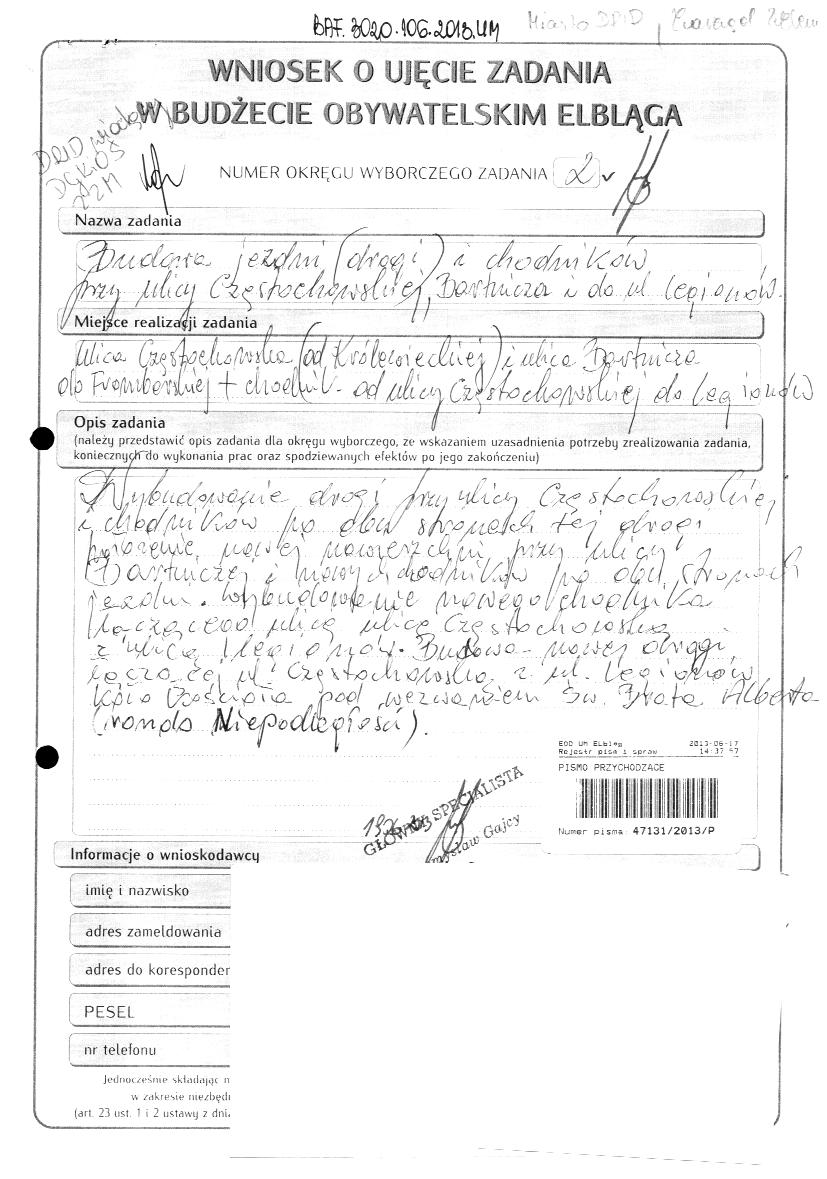 BAF. 3020.106.2013.UM
Miasto DPID, Zarząd Zieleni
WNIOSEK O UJĘCIE ZADANIA
W BUDŻECIE OBYWATELSKIM ELBLĄGA
DPID
NUMER OKRĘGU WYBORCZEGO ZADANIA 2
Nazwa zadania
Budowa jezdni (drogi) i chodników
przy ulicy Częstochowskiej, Bartnicza i do ul Legionów.
Miejsce realizacji zadania
Ulica Częstochowska (od Królewieckiej) i ulica Bartnicza
do Fromborskiej + chodnik od ulicy Częstochowskiej do Legionów
Opis zadania
(należy przedstawić opis zadania dla okręgu wyborczego, ze wskazaniem uzasadnienia potrzeby zrealizowania zadania,
koniecznych do wykonania prac oraz spodziewanych efektów po jego zakończeniu)
Wybudowanie drogi przy ulicy Częstochowskiej
i chodników po obu stronach tej drogi
położenie nowej nawierzchni przy ulicy
Bartniczej i nowych chodników po obu stronach
jezdni. Wybudowanie nowego chodnika
łączącego ulicę ulicę Częstochowską
z ulicą Legionów. Budowa nowej drogi
łączącej ul. Częstochowską z ul. Legionów
koło Kościoła pod wezwaniem Św. Brata Alberta
(rondo Niepodległości).
EOD UM Elbląg 2013-06-17
Rejestr pism i spraw 14:37:57
PISMO PRZYCHODZĄCE
Numer pisma: 47131/2013/P
GŁÓWNY SPECJALISTA
Gajcy
Informacje o wnioskodawcy
imię i nazwisko
adres zameldowania
adres do koresponden
PESEL
nr telefonu
Jednocześnie składając n
w zakresie niezbędn
(art. 23 ust. 1 i 2 ustawy z dnia